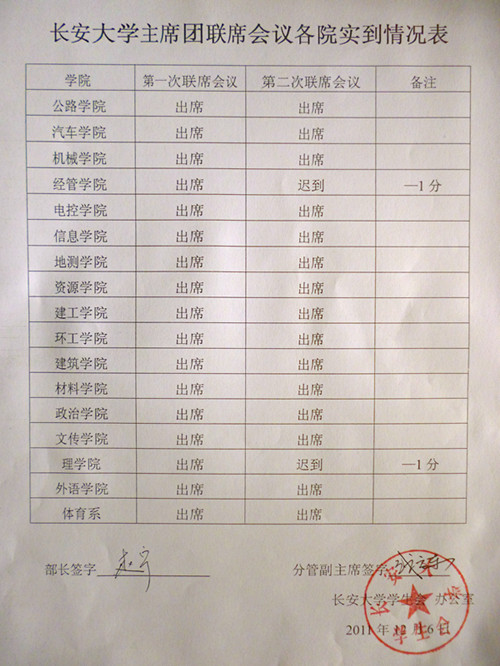 长安大学主席团联席会议各院实到情况表
学院 第一次联席会议 第二次联席会议 备注
公路学院 出席 出席
汽车学院 出席 出席
机械学院 出席 出席
经管学院 出席 迟到 —1分
电控学院 出席 出席
信息学院 出席 出席
地测学院 出席 出席
资源学院 出席 出席
建工学院 出席 出席
环工学院 出席 出席
建筑学院 出席 出席
材料学院 出席 出席
政治学院 出席 出席
文传学院 出席 出席
理学院 出席 迟到 —1分
外语学院 出席 出席
体育系 出席 出席
部长签字 分管副主席签字
长安大学学生会 办公室
2011年12月6日